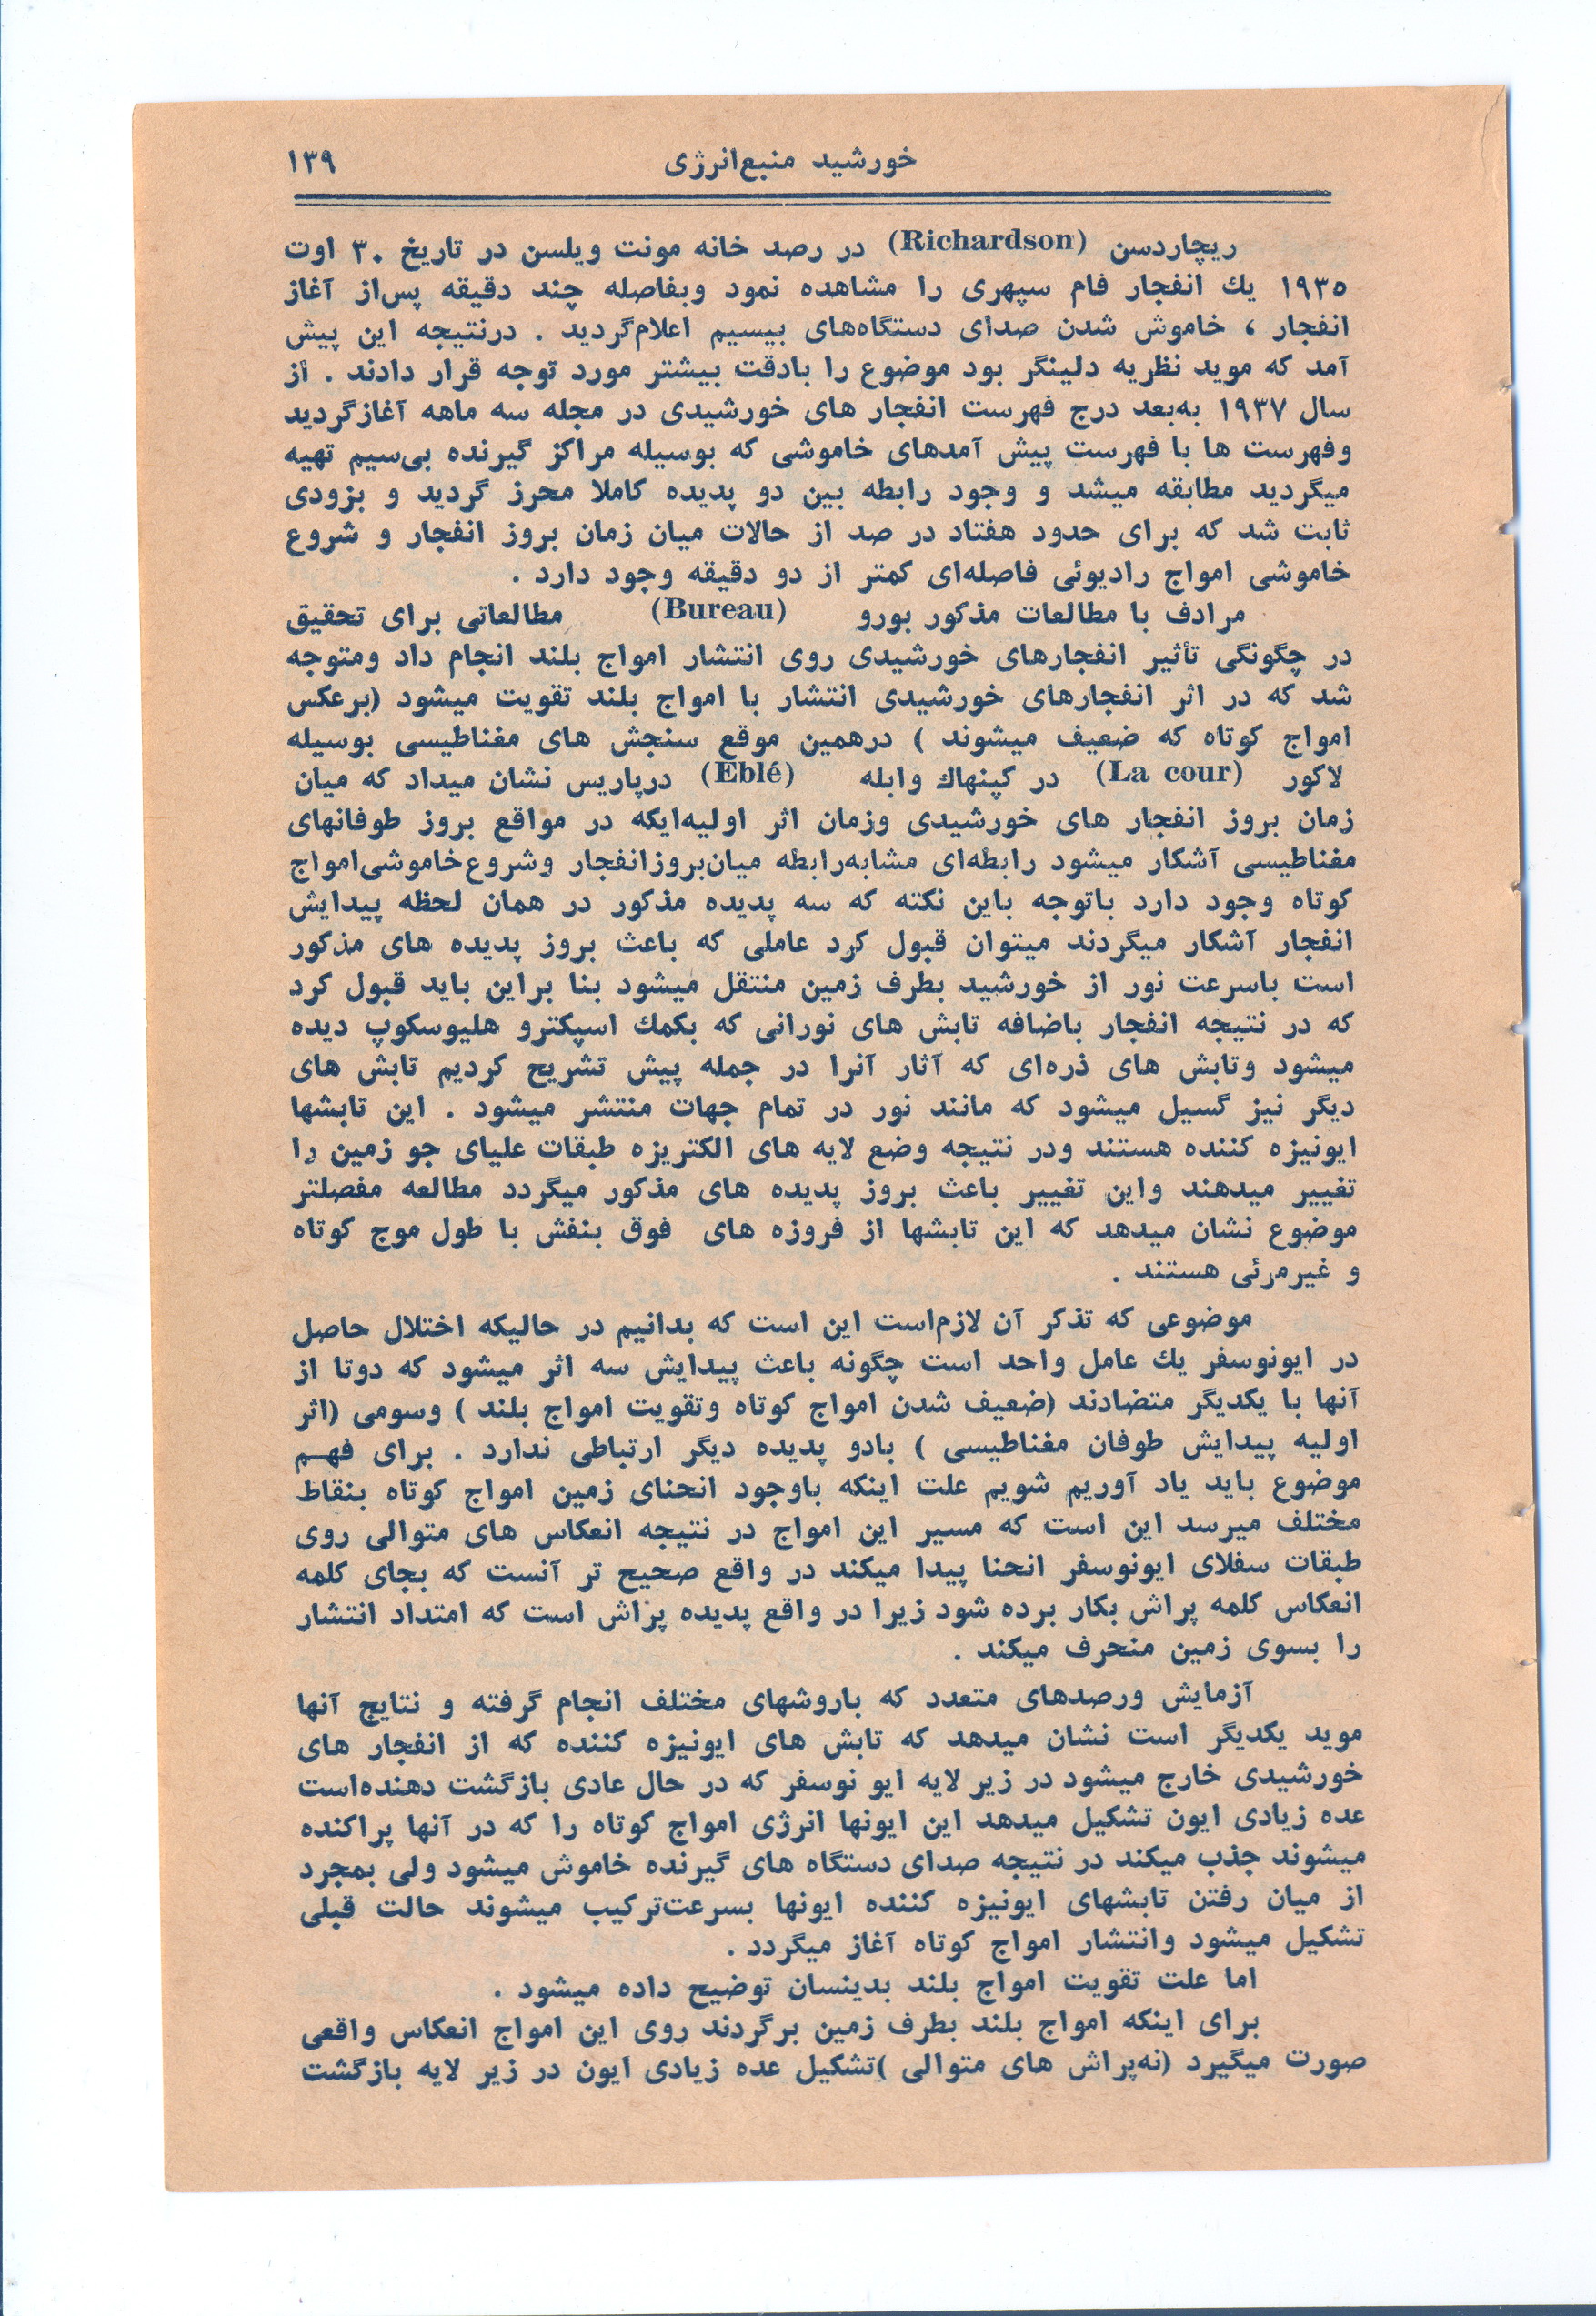 خورشید منبع‌انرژی
۱۳۹
ریچاردسن (Richardson) در رصد خانه مونت ویلسن در تاریخ ۳۰ اوت
۱۹۳۵ یك انفجار فام سپهری را مشاهده نمود وبفاصله چند دقیقه پس‌از آغاز
انفجار ، خاموش شدن صدای دستگاه‌های بیسیم اعلام‌گردید . درنتیجه این پیش
آمد که موید نظریه دلینگر بود موضوع را بادقت بیشتر مورد توجه قرار دادند . از
سال ۱۹۳۷ به‌بعد درج فهرست انفجار های خورشیدی در مجله سه ماهه آغازگردید
وفهرست ها با فهرست پیش آمدهای خاموشی که بوسیله مراکز گیرنده بی‌سیم تهیه
میگردید مطابقه میشد و وجود رابطه بین دو پدیده کاملا محرز گردید و بزودی
ثابت شد که برای حدود هفتاد در صد از حالات میان زمان بروز انفجار و شروع
خاموشی امواج رادیوئی فاصله‌ای کمتر از دو دقیقه وجود دارد .
مرادف با مطالعات مذکور بورو (Bureau) مطالعاتی برای تحقیق
در چگونگی تأثیر انفجارهای خورشیدی روی انتشار امواج بلند انجام داد ومتوجه
شد که در اثر انفجارهای خورشیدی انتشار با امواج بلند تقویت میشود (برعکس
امواج کوتاه که ضعیف میشوند ) درهمین موقع سنجش های مغناطیسی بوسیله
لاکور (La cour) در کپنهاك وابله (Eblé) درپاریس نشان میداد که میان
زمان بروز انفجار های خورشیدی وزمان اثر اولیه‌ایکه در مواقع بروز طوفانهای
مغناطیسی آشکار میشود رابطه‌ای مشابه‌رابطه میان‌بروزانفجار وشروع‌خاموشی‌امواج
کوتاه وجود دارد باتوجه باین نکته که سه پدیده مذکور در همان لحظه پیدایش
انفجار آشکار میگردند میتوان قبول کرد عاملی که باعث بروز پدیده های مذکور
است باسرعت نور از خورشید بطرف زمین منتقل میشود بنا براین باید قبول کرد
که در نتیجه انفجار باضافه تابش های نورانی که بکمك اسپکترو هلیوسکوپ دیده
میشود وتابش های ذره‌ای که آثار آنرا در جمله پیش تشریح کردیم تابش های
دیگر نیز گسیل میشود که مانند نور در تمام جهات منتشر میشود . این تابشها
ایونیزه کننده هستند ودر نتیجه وضع لایه های الکتریزه طبقات علیای جو زمین را
تغییر میدهند واین تغییر باعث بروز پدیده های مذکور میگردد مطالعه مفصلتر
موضوع نشان میدهد که این تابشها از فروزه های فوق بنفش با طول موج کوتاه
و غیرمرئی هستند .
موضوعی که تذکر آن لازم‌است این است که بدانیم در حالیکه اختلال حاصل
در ایونوسفر یك عامل واحد است چگونه باعث پیدایش سه اثر میشود که دوتا از
آنها با یکدیگر متضادند (ضعیف شدن امواج کوتاه وتقویت امواج بلند ) وسومی (اثر
اولیه پیدایش طوفان مغناطیسی ) بادو پدیده دیگر ارتباطی ندارد . برای فهـم
موضوع باید یاد آوریم شویم علت اینکه باوجود انحنای زمین امواج کوتاه بنقاط
مختلف میرسد این است که مسیر این امواج در نتیجه انعکاس های متوالی روی
طبقات سفلای ایونوسفر انحنا پیدا میکند در واقع صحیح تر آنست که بجای کلمه
انعکاس کلمه پراش بکار برده شود زیرا در واقع پدیده پراش است که امتداد انتشار
را بسوی زمین منحرف میکند .
آزمایش ورصدهای متعدد که باروشهای مختلف انجام گرفته و نتایج آنها
موید یکدیگر است نشان میدهد که تابش های ایونیزه کننده که از انفجار های
خورشیدی خارج میشود در زیر لایه ایو نوسفر که در حال عادی بازگشت دهنده‌است
عده زیادی ایون تشکیل میدهد این ایونها انرژی امواج کوتاه را که در آنها پراکنده
میشوند جذب میکند در نتیجه صدای دستگاه های گیرنده خاموش میشود ولی بمجرد
از میان رفتن تابشهای ایونیزه کننده ایونها بسرعت‌ترکیب میشوند حالت قبلی
تشکیل میشود وانتشار امواج کوتاه آغاز میگردد .
اما علت تقویت امواج بلند بدینسان توضیح داده میشود .
برای اینکه امواج بلند بطرف زمین برگردند روی این امواج انعکاس واقعی
صورت میگیرد (نه‌پراش های متوالی )تشکیل عده زیادی ایون در زیر لایه بازگشت